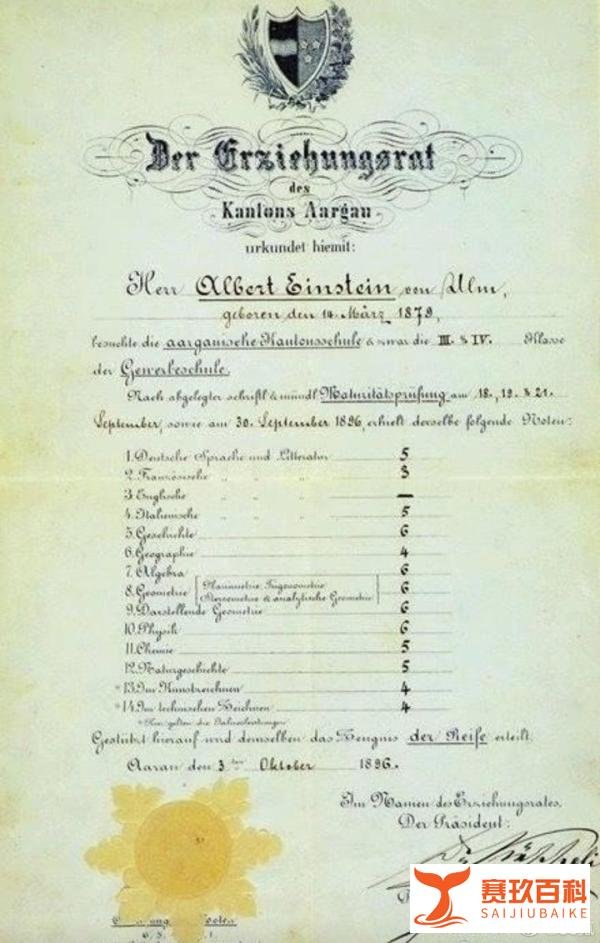 Der Erziehungsrat
des
Kantons Aargau
urkundet hiemit:
Herr Albert Einstein von Ulm,
geboren den 14. März 1879,
besuchte die aargauische Kantonsschule & zwar die III. & IV. Klasse
der Gewerbeschule.
Nach abgelegter schriftl. & mündl. Maturitätsprüfung am 18., 19. & 21.
September, sowie am 30. September 1896, erhielt derselbe folgende Noten:
1. Deutsche Sprache und Litteratur 5
2. Französische " " " 3
3. Englische " " " —
4. Italienische " " " 5
5. Geschichte 6
6. Geographie 4
7. Algebra 6
8. Geometrie [Planimetrie, Trigonometrie, Stereometrie & analytische Geometrie] 6
9. Darstellende Geometrie 6
10. Physik 6
11. Chemie 5
12. Naturgeschichte 5
*13. Im Kunstzeichnen 4
*14. Im technischen Zeichnen 4
*Hier gelten die Jahresleistungen.
Gestützt hierauf wird demselben das Zeugnis der Reife erteilt.
Aarau den 3ten Oktober 1896.
Im Namen des Erziehungsrates,
Der Präsident:
赛玖百科
SAIJIUBAIKE